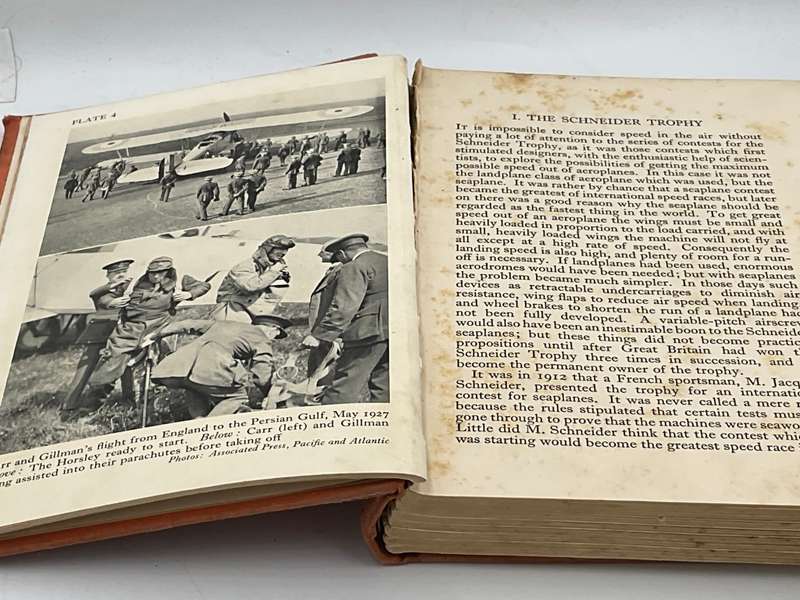 PLATE 4
rr and Gillman's flight from England to the Persian Gulf, May 1927
ove: The Horsley ready to start. Below: Carr (left) and Gillman
ng assisted into their parachutes before taking off
Photos: Associated Press, Pacific and Atlantic
I. THE SCHNEIDER TROPHY
IT is impossible to consider speed in the air without
paying a lot of attention to the series of contests for the
Schneider Trophy, as it was those contests which first
stimulated designers, with the enthusiastic help of scien-
tists, to explore the possibilities of getting the maximum
possible speed out of aeroplanes. In this case it was not
the landplane class of aeroplane which was used, but the
seaplane. It was rather by chance that a seaplane contest
became the greatest of international speed races, but later
on there was a good reason why the seaplane should be
regarded as the fastest thing in the world. To get great
speed out of an aeroplane the wings must be small and
heavily loaded in proportion to the load carried, and with
small, heavily loaded wings the machine will not fly at
all except at a high rate of speed. Consequently the
landing speed is also high, and plenty of room for a run-
off is necessary. If landplanes had been used, enormous
aerodromes would have been needed; but with seaplanes
the problem became much simpler. In those days such
devices as retractable undercarriages to diminish air
resistance, wing flaps to reduce air speed when landing
and wheel brakes to shorten the run of a landplane had
not been fully developed. A variable-pitch airscre
would also have been an inestimable boon to the Schneide
seaplanes; but these things did not become practic
propositions until after Great Britain had won th
Schneider Trophy three times in succession, and
become the permanent owner of the trophy.
It was in 1912 that a French sportsman, M. Jacq
Schneider, presented the trophy for an internatio
contest for seaplanes. It was never called a mere r
because the rules stipulated that certain tests mus
gone through to prove that the machines were seawo
Little did M. Schneider think that the contest whic
was starting would become the greatest speed race